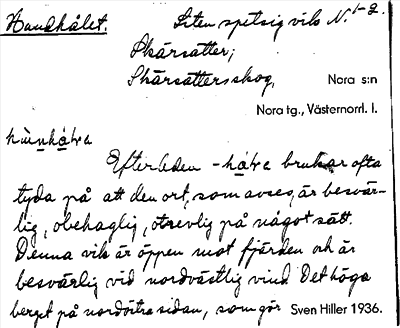 Hundhålet. Liten spetsig vik N. 1-2.
Skärsätter;
Skärsättersskog, Nora s:n
Nora tg., Västernorrl. l.
Efterleden -håle brukar ofta
tyda på att den ort, som avses, är besvär-
lig, obehaglig, otrevlig på något sätt.
Denna vik är öppen mot fjärden och är
besvärlig vid nordvästlig vind. Det höga
berget på nordöstra sidan, som gör Sven Hiller 1936.